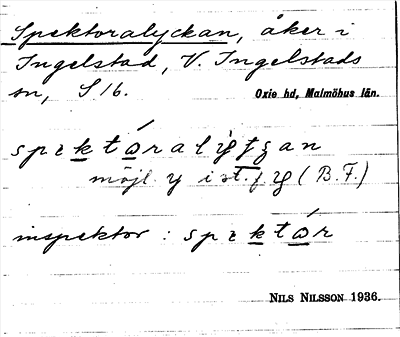 Spektoralyckan, åker i
Ingelstad, V. Ingelstads
sn, S 16.
Oxie hd, Malmöhus län.
möjl. y i st. f. (B. F.)
inspektor :
NILS NILSSON 1936.